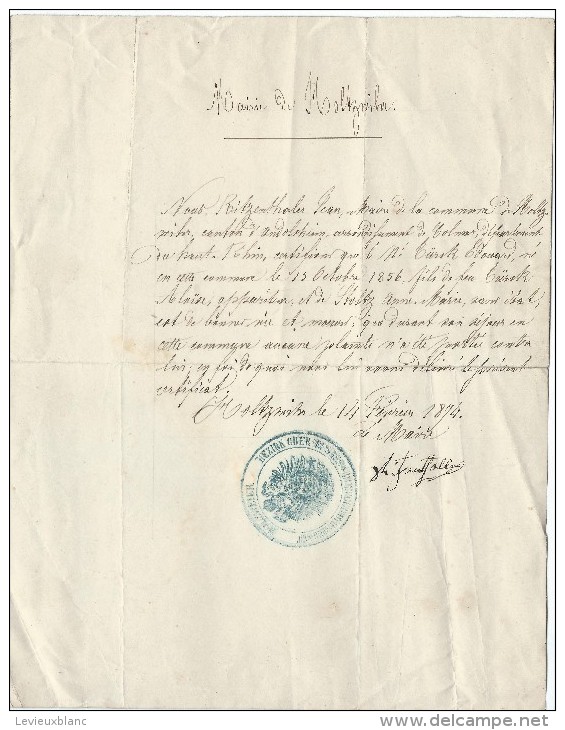 Mairie de Holtzwihr.
Nous Ritzenthaler Jean, Maire de la commune de Holtz-
wihr, canton d'Andolsheim, arrondissement de Colmar, département
du haut-Rhin, certifions que le Né Türck Edouard, né
en cette commune le 15 Octobre 1856 fils de feu Türck
Aloise, appariteur, et de Stoltz Anne-Marie, sans état,
est de bonne vie et mœurs, que durant son séjour en
cette commune aucune plainte n'a été portée contre
lui; en foi de quoi nous lui avons délivré le présent
certificat.
Holtzwihr le 14 Février 1874.
Le Maire
Ritzenthaler
BEZIRK OBER
Levieuxblanc
www.delcampe.net